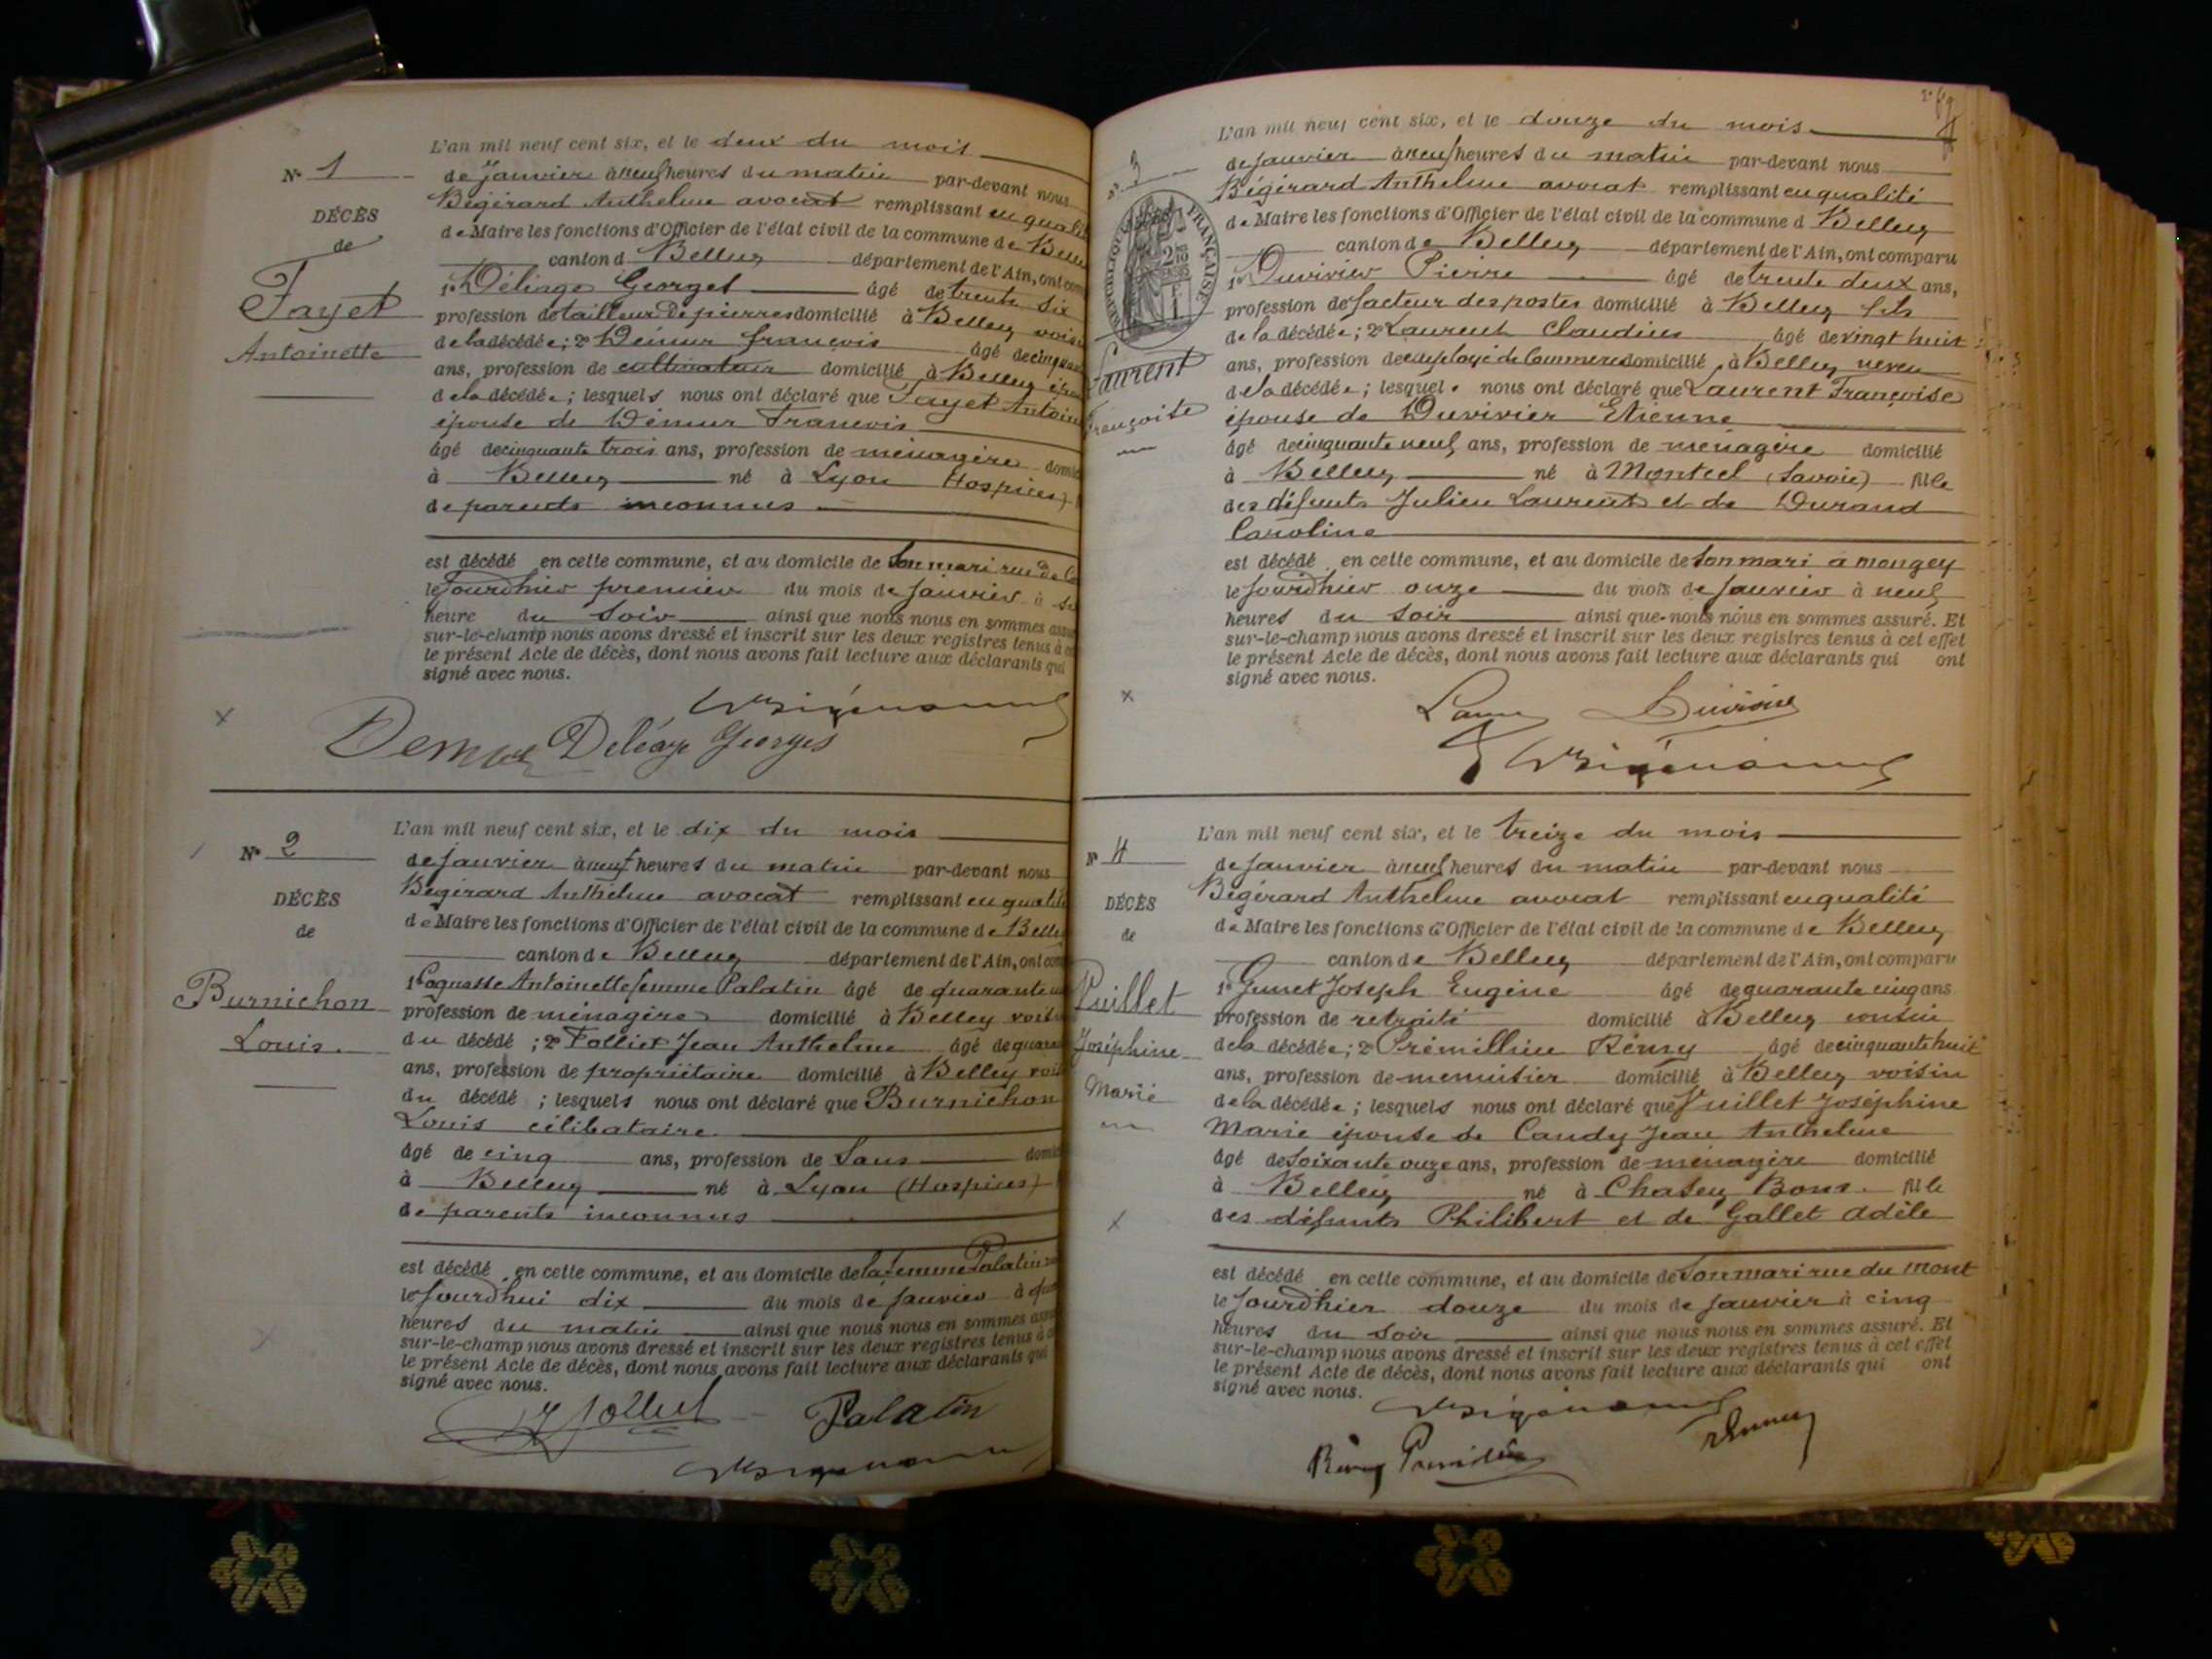 L'an mil neuf cent six, et le deux du mois
N° 1
de Janvier à neuf heures du matin par-devant nous
Bégérard Anthelme avocat remplissant en qualité
DÉCÈS
de Maire les fonctions d'Officier de l'état civil de la commune de Belley
de
canton d Belley département de l'Ain, ont com
Fayet
1° Déliage Georges âgé de trente six
profession de tailleur de pierres domicilié à Belley voisin
Antoinette
de la décédée; 2° Démur françois âgé de cinquan
ans, profession de cultivateur domicilié à Belley époux
de la décédée; lesquels nous ont déclaré que Fayet Antoin
épouse de Démur François
âgé de cinquante trois ans, profession de ménagère domic
à Belley né à Lyon Hospices)
de parents inconnus
est décédé en cette commune, et au domicile de Son mari rue de la
le Jourdhier premier du mois de Janvier à
heure du Soir ainsi que nous nous en sommes assu
sur-le-champ nous avons dressé et inscrit sur les deux registres tenus à c
le présent Acte de décès, dont nous avons fait lecture aux déclarants qui
signé avec nous.
Demur Deléage Georges
L'an mil neuf cent six, et le dix du mois
N° 2
de Janvier à neuf heures du matin par-devant nous
Bégérard Anthelme avocat remplissant en qualité
DÉCÈS
de Maire les fonctions d'Officier de l'état civil de la commune de Belley
de
canton de Belley département de l'Ain, ont com
Burnichon
1° Coquasse Antoinette femme Palatin âgé de quarante
profession de ménagère domicilié à Belley voisin
Louis.
du décédé; 2° Folliet Jean Anthelme âgé de quaran
ans, profession de propriétaire domicilié à Belley voisin
du décédé; lesquels nous ont déclaré que Burnichon
Louis célibataire
âgé de cinq ans, profession de Sans domic
à Belley né à Lyon (Hospices)
de parents inconnus
est décédé en cette commune, et au domicile de la femme Palatin
le Jourdhui dix du mois de Janvier à
heures du matin ainsi que nous nous en sommes assu
sur-le-champ nous avons dressé et inscrit sur les deux registres tenus à c
le présent Acte de décès, dont nous avons fait lecture aux déclarants qui
signé avec nous.
Folliet Palatin
L'an mil neuf cent six, et le douze du mois
N° 3
de Janvier à neuf heures du matin par-devant nous
Bégérard Anthelme avocat remplissant en qualité
de Maire les fonctions d'Officier de l'état civil de la commune d Belley
RÉPUBLIQUE FRANÇAISE
canton de Belley département de l'Ain, ont comparu
1° Duvivier Pierre âgé de trente deux ans,
profession de facteur des postes domicilié à Belley fils
de la décédée; 2° Laurent Claudius âgé de vingt huit
Laurent
ans, profession de employé de Commerce domicilié à Belley neveu
de la décédée; lesquel. nous ont déclaré que Laurent Françoise
Françoise
épouse de Duvivier Etienne
âgé de cinquante neuf ans, profession de ménagère domicilié
à Belley né à Montcel (Savoie) fille
des défunts Julien Laurent et de Durand
Caroline
est décédé en cette commune, et au domicile de Son mari à mongey
le Jourdhier onze du mois de Janvier à neuf
heures du Soir ainsi que nous nous en sommes assuré. Et
sur-le-champ nous avons dressé et inscrit sur les deux registres tenus à cet effet
le présent Acte de décès, dont nous avons fait lecture aux déclarants qui ont
signé avec nous.
Duvivier
L'an mil neuf cent six, et le treize du mois
N° 4
de Janvier à neuf heures du matin par-devant nous
Bégérard Anthelme avocat remplissant en qualité
DÉCÈS
de Maire les fonctions d'Officier de l'état civil de la commune de Belley
de
canton de Belley département de l'Ain, ont comparu
Vuillet
1° Gunet Joseph Eugène âgé de quarante cinq ans
profession de retraité domicilié à Belley cousin
Joséphine
de la décédée; 2° Prémillieu Rémy âgé de cinquante huit
ans, profession de menuisier domicilié à Belley voisin
Marie
de la décédée; lesquels nous ont déclaré que Vuillet Joséphine
Marie épouse de Candy Jean Anthelme
âgé de Soixante onze ans, profession de ménagère domicilié
à Belley né à Chazey Bons. fille
des défunts Philibert et de Gallet Adèle
est décédé en cette commune, et au domicile de Son mari rue du mont
le Jourdhier douze du mois de Janvier à cinq
heures du Soir ainsi que nous nous en sommes assuré. Et
sur-le-champ nous avons dressé et inscrit sur les deux registres tenus à cet effet
le présent Acte de décès, dont nous avons fait lecture aux déclarants qui ont
signé avec nous.
Rémy Prémillieu